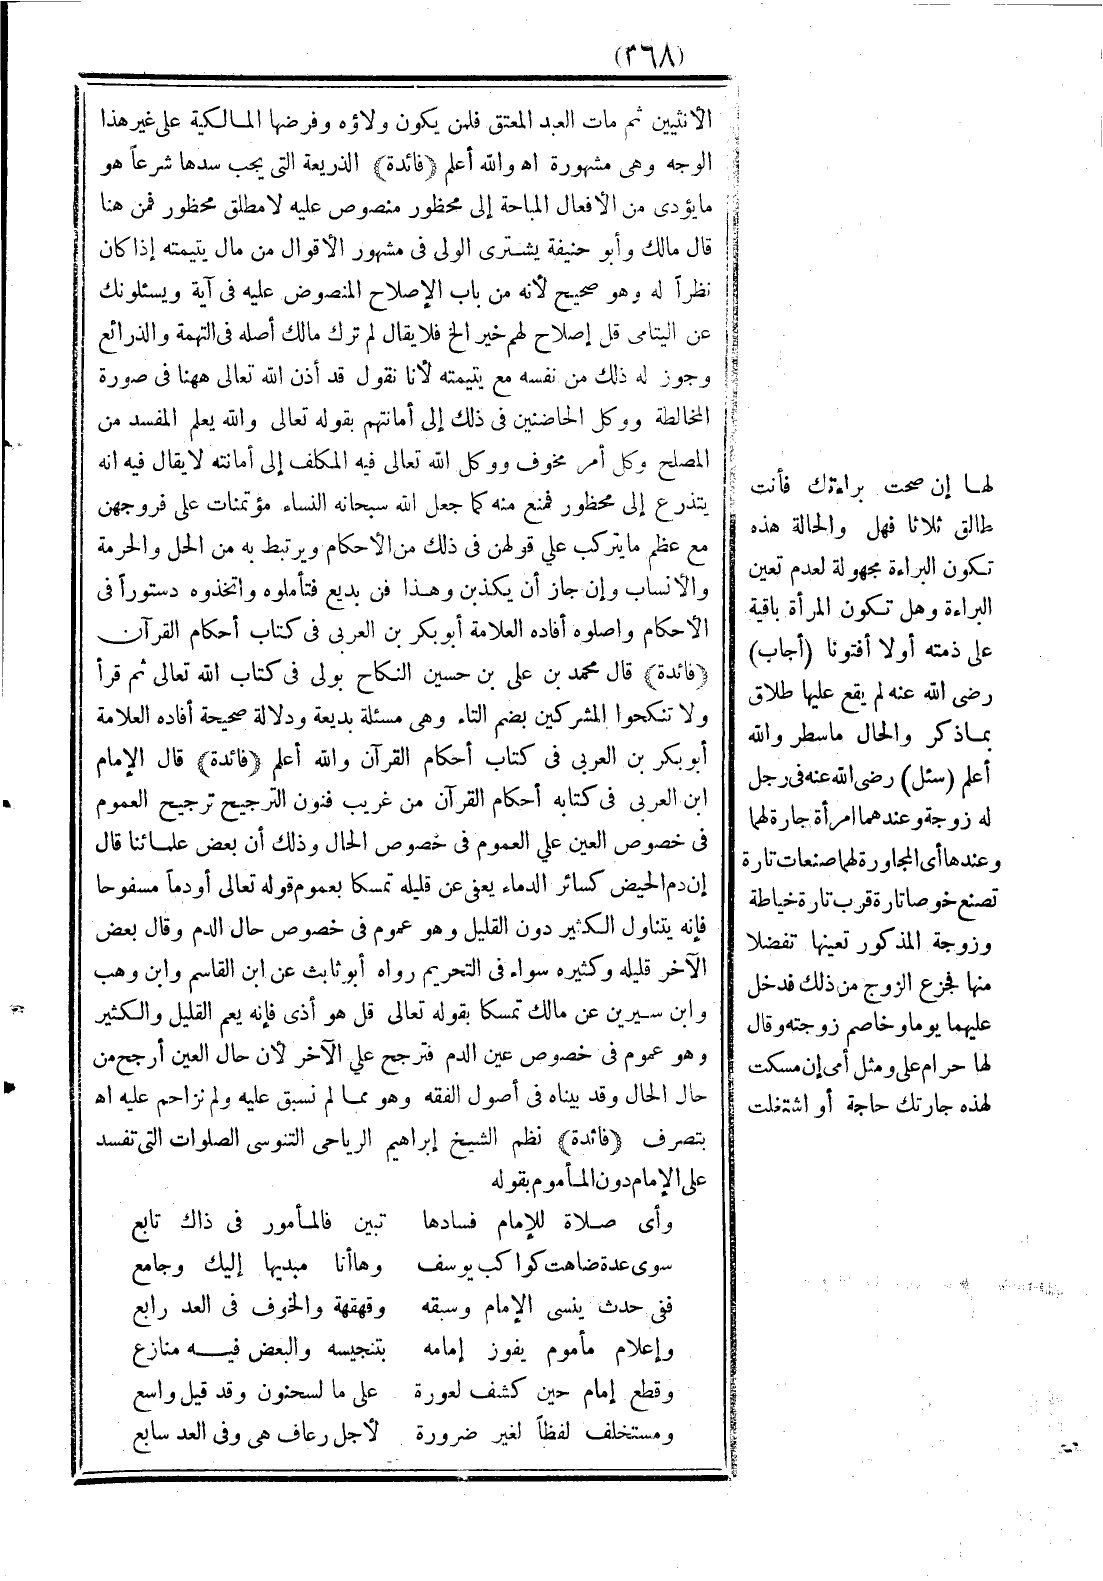 (٣٦٨)
الأنثيين ثم مات العبد المعتق فلمن يكون ولاؤه وفرضها المالكية على غير هذا
الوجه وهى مشهورة اه والله أعلم (فائدة) الذريعة التى يجب سدها شرعاً هو
مايؤدى من الأفعال المباحة إلى محظور منصوص عليه لامطلق محظور فمن هنا
قال مالك وأبو حنيفة يشترى الولى فى مشهور الأقوال من مال يتيمته إذا كان
نظراً له وهو صحيح لأنه من باب الإصلاح المنصوض عليه فى آية ويسئلونك
عن اليتامى قل إصلاح لهم خير الخ فلا يقال لم ترك مالك أصله فى التهمة والذرائع
وجوز له ذلك من نفسه مع يتيمته لأنا نقول قد أذن الله تعالى ههنا فى صورة
المخالطة ووكل الحاضنين فى ذلك إلى أمانتهم بقوله تعالى والله يعلم المفسد من
المصلح وكل أمر مخوف ووكل الله تعالى فيه المكلف إلى أمانته لايقال فيه انه
يتذرع إلى محظور فمنع منه كما جعل الله سبحانه النساء مؤتمنات على فروجهن
مع عظم مايتركب علي قولهن فى ذلك من الأحكام ويرتبط به من الحل والحرمة
والأنساب وإن جاز أن يكذبن وهذا فن بديع فتأملوه واتخذوه دستوراً فى
الأحكام واصلوه أفاده العلامة أبو بكر بن العربى فى كتاب أحكام القرآن
(فائدة) قال محمد بن على بن حسين النكاح بولى فى كتاب الله تعالى ثم قرأ
ولا تنكحوا المشركين بضم التاء وهى مسئلة بديعة ودلالة صحيحة أفاده العلامة
أبو بكر بن العربى فى كتاب أحكام القرآن والله أعلم (فائدة) قال الإمام
ابن العربى فى كتابه أحكام القرآن من غريب فنون الترجيح ترجيح العموم
فى خصوص العين علي العموم فى خصوص الحال وذلك أن بعض علمائنا قال
إن دم الحيض كسائر الدماء يعفى عن قليله تمسكا بعموم قوله تعالى أو دماً مسفوحا
فإنه يتناول الكثير دون القليل وهو عموم فى خصوص حال الدم وقال بعض
الآخر قليله وكثيره سواء فى التحريم رواه أبو ثابث عن ابن القاسم وابن وهب
وابن سيرين عن مالك تمسكا بقوله تعالى قل هو أذى فإنه يعم القليل والكثير
وهو عموم فى خصوص عين الدم فترجح علي الآخر لأن حال العين أرجح من
حال الحال وقد بيناه فى أصول الفقه وهو مما لم نسبق عليه ولم نزاحم عليه اه
بتصرف (فائدة) نظم الشيخ إبراهيم الرياحى التنوسى الصلوات التى تفسد
على الإمام دون المأموم بقوله
وأى صلاة للإمام فسادها تبين فالمأمور فى ذاك تابع
سوى عدة ضاهت كواكب يوسف وهاأنا مبديها إليك وجامع
ففى حدث ينسى الإمام وسبقه وقهقهة والخوف فى العد رابع
وإعلام مأموم يفوز إمامه بتنجيسه والبعض فيه منازع
وقطع إمام حين كشف لعورة على ما لسحنون وقد قيل واسع
ومستخلف لفظاً لغير ضرورة لأجل رعاف هى وفى العد سابع
لها إن صحت براءتك فأنت
طالق ثلاثا فهل والحالة هذه
تكون البراءة مجهولة لعدم تعين
البراءة وهل تكون المرأة باقية
على ذمته أولا أفتونا (أجاب)
رضى الله عنه لم يقع عليها طلاق
بماذكر والحال ماسطر والله
أعلم (سئل) رضى الله عنه فى رجل
له زوجة وعندهما امرأة جارة لهما
وعندها أى المجاورة لهما صنعات تارة
تصنع خوصا تارة قرب تارة خياطة
وزوجة المذكور تعينها تفضلا
منها فجزع الزوج من ذلك فدخل
عليهما يوما وخاصم زوجته وقال
لها حرام على ومثل أمى إن مسكت
لهذه جارتك حاجة أو اشتغلت